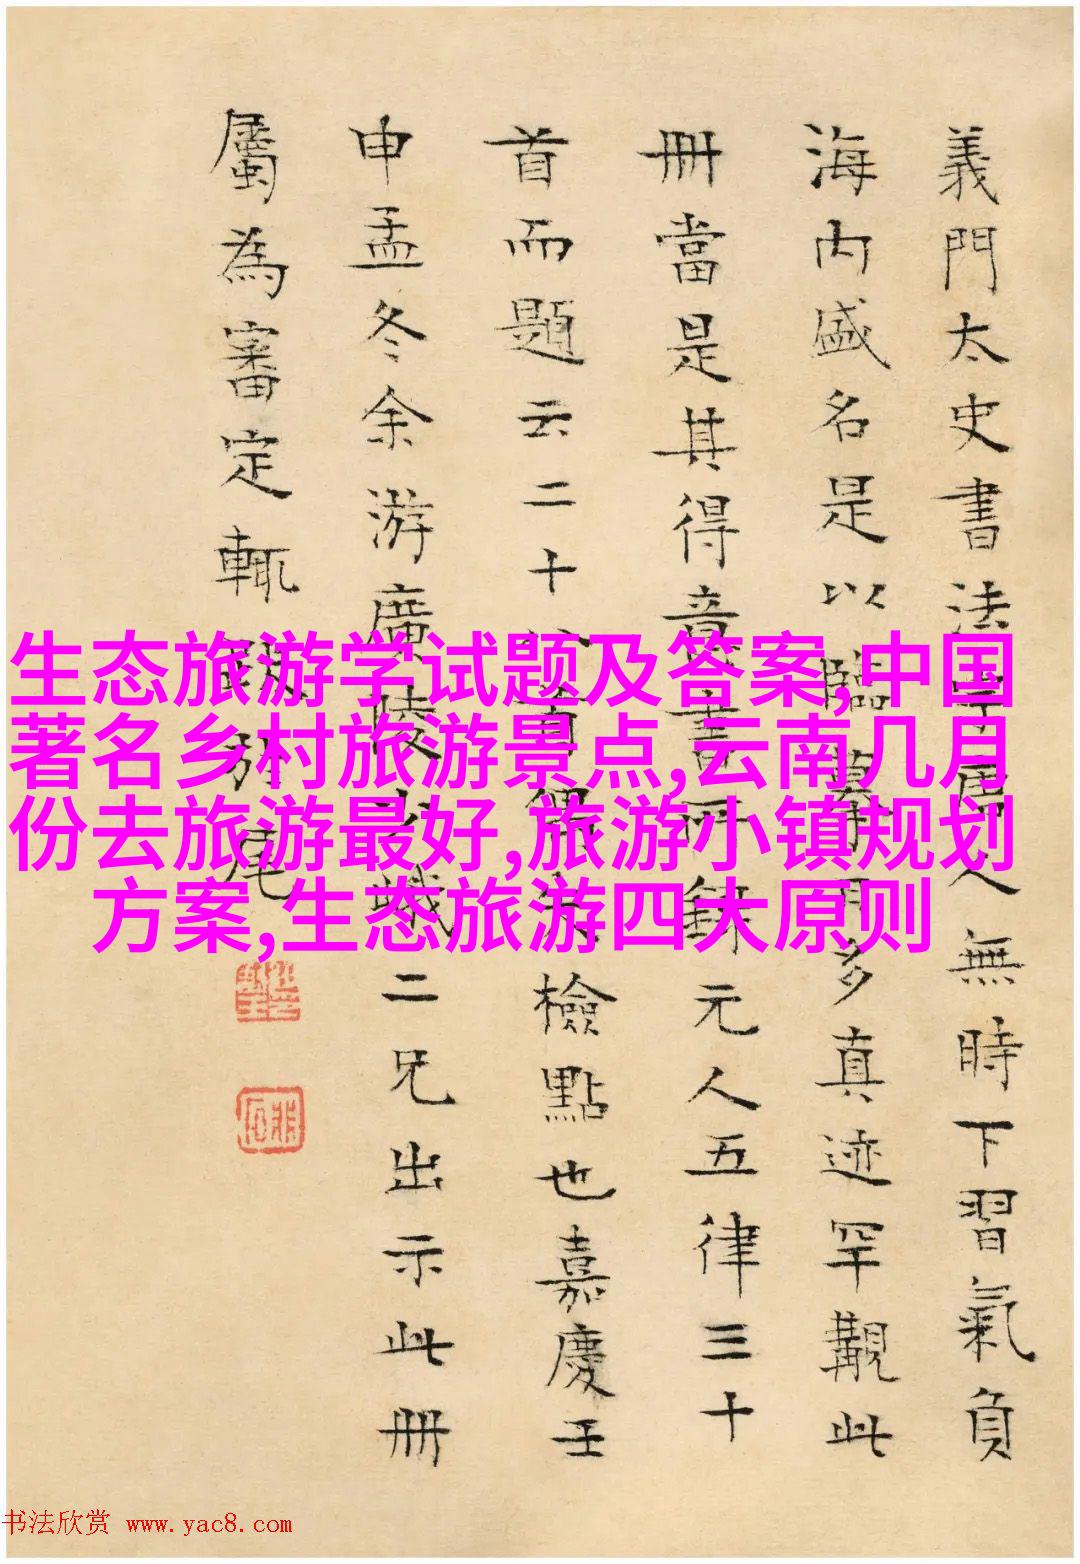 義門太史書法學唐人無時下習氣負
海内盛名是以臨摹多真迹罕覯此
冊當是其得意書所録元人五律三十
首而題云二十八首偶失檢點也嘉慶壬
申孟冬余游廣陵二兄出示此冊
屬為審定輒尾
生态旅游学试题及答案,中国
著名乡村旅游景点,云南几月
份去旅游最好,旅游小镇规划
方案,生态旅游四大原则
书法欣赏 www.yac8.com